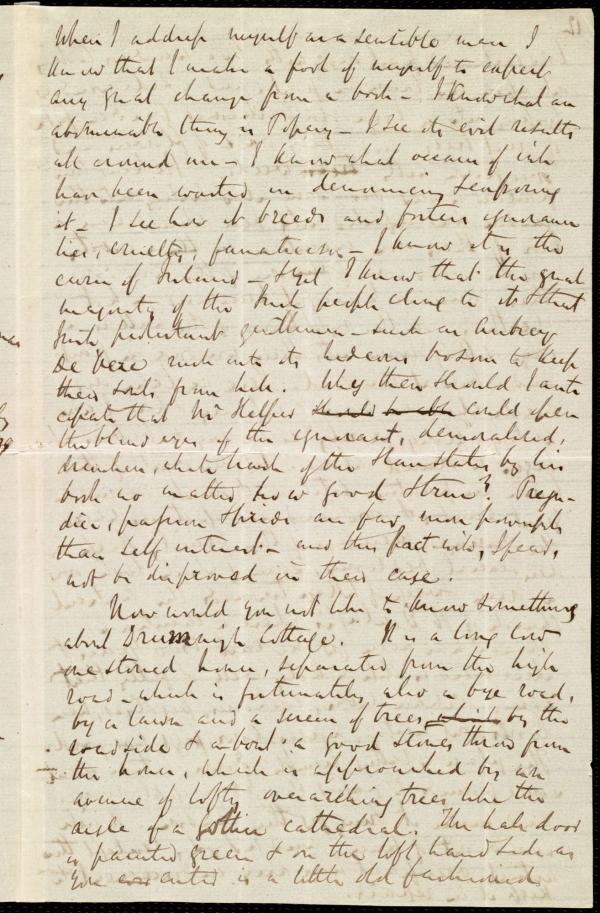 12
When I address myself as a sensible man I
know that I make a fool of myself to expect
any great change from a book - I know what an
abominable thing is Popery - I see its evil results
all around me - I know what oceans of ink
have been wasted in denouncing & exposing
it - I see how it breeds and fosters ignorance
lies, cruelty, fanaticism - I know it is the
curse of Ireland - & yet I know that the great
majority of the Irish people cling to it & that
Irish protestant gentlemen - such as Aubrey
De Vere rush into its hideous bosom to keep
their souls from hell. Why then should I anti-
cipate that Mr Helper should be able could open
the blind eyes of the ignorant, demoralised,
drunken, white trash of the Slave States by his
book no matter how good & true? Preju-
dice, passion & pride are far more powerful
than self interest - and this fact will, I fear,
not be disproved in their case.
Now would you not like to know something
about Drumnaigh Cottage. It is a long low
one storied house, separated from the high
road - which is fortunately also a bye road,
by a lawn and a screen of trees, which by the
roadside & about a good stones throw from
the house, which is approached by an
avenue of lofty overarching trees like the
aisle of a Gothic cathedral. The hall door
is painted green & on the left hand side as
you entered is a little old fashioned